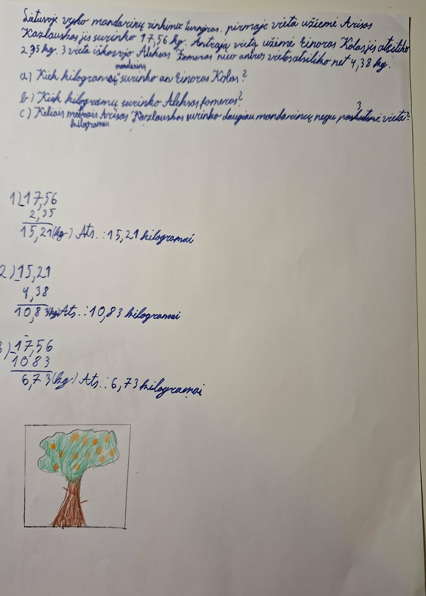 Lietuvoje vyko mandarinų rinkimo turnyras. pirmąja vietą užiėmė Arisas
Kazlauskas jis surinko 17,56 kg. Antrąją vietą užiėmė Einoras Kolas jis atsiliko
2,35 kg. 3 vieta iškovojo Aleksas Pomeras nuo antros vietos atsiliko net 4,38 kg.
mandarinų
a) Kiek kilogramų surinko an Einoras Kolas?
b) Kiek kilogramų surinko Aleksas Pomeras?
c) Keliais Arisas Kazlauskas surinko daugiau mandarinų negu paskutinė vieta?
kilogramais
1) 17,56
2,35
15,21 (kg) Ats.: 15,21 kilogramai
2) 15,21
4,38
10,83 (kg) Ats.: 10,83 kilogramai
3) 17,56
1083
6,73 (kg) Ats.: 6,73 kilogramai